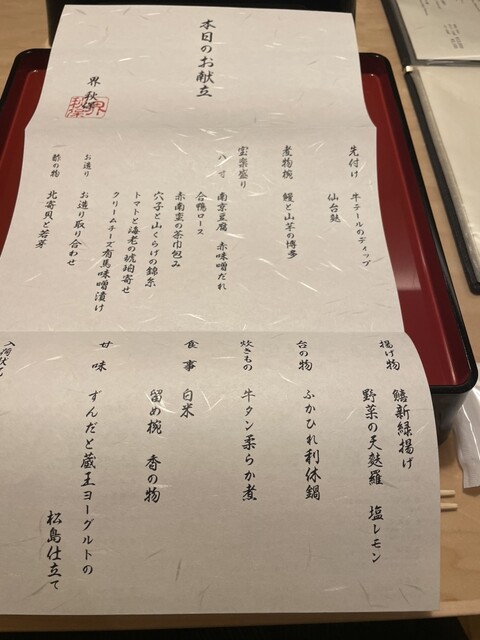 本日のお献立
界 秋保
先付け 牛テールのディップ
仙台麩
煮物椀 鰻と山芋の博多
宝楽盛り
八寸 南京豆腐 赤味噌だれ
合鴨ロース
赤南蛮の茶巾包み
穴子と山くらげの錦糸
トマトと海老の琥珀寄せ
クリームチーズ有馬味噌漬け
お造り お造り取り合わせ
酢の物 北寄貝と若芽
揚げ物 鱚新緑揚げ
野菜の天麩羅 塩レモン
台の物 ふかひれ利休鍋
炊きもの 牛タン柔らか煮
食事 白米
留め椀 香の物
甘味 ずんだと蔵王ヨーグルトの
松島仕立て